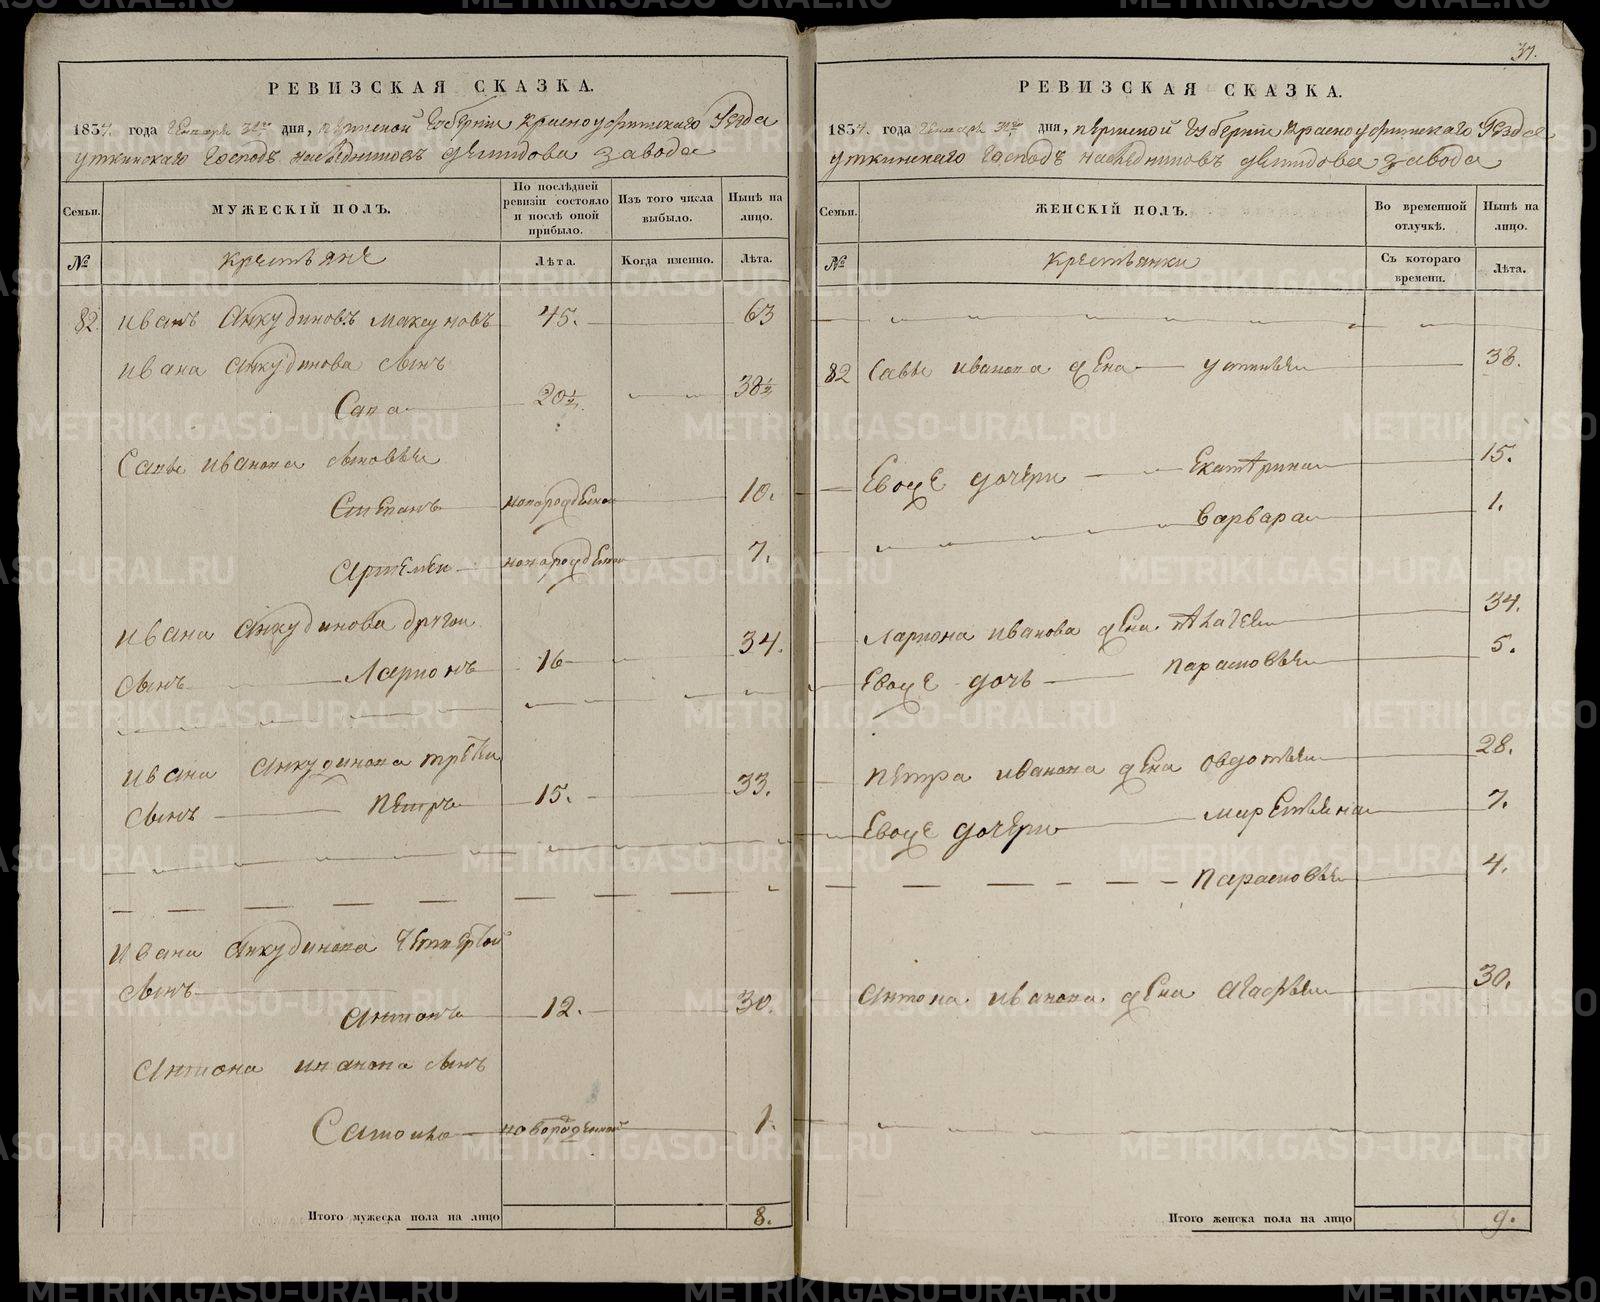 РЕВИЗСКАЯ СКАЗКА.
1834. года Генваря 31го дня, Пермской Губернии Красноуфимского Уезда
Уткинского Господъ наследниковъ Демидова завода
Семьи.
МУЖЕСКІЙ ПОЛЪ.
По послѣдней ревизіи состояло и послѣ оной прибыло.
Изъ того числа выбыло.
Нынѣ на лицо.
№
Крестьяне
Лѣта.
Когда именно.
Лѣта.
82. Иванъ Анкудиновъ 45. 63
Ивана Анкудинова сынъ
Сава 20½ 38½
Савы Иванова сыновья
Степанъ новорожденной 10.
Артемеи новорожденной 7.
Ивана Анкудинова другои
сынъ Ларионъ 16 34.
Ивана Анкудинова третеи
сынъ Петръ 15. 33.
Ивана Анкудинова четвертой
сынъ
Антонъ 12. 30.
Антона Иванова сынъ
новорожденной 1.
Итого мужеска пола на лицо 8.
37.
РЕВИЗСКАЯ СКАЗКА.
1834. года Генваря 31го дня, Пермской Губернии Красноуфимского Уезда
Уткинского Господъ наследниковъ Демидова завода
Семьи.
ЖЕНСКІЙ ПОЛЪ.
Во временной отлучкѣ.
Нынѣ на лицо.
№
Крестьянки
Съ котораго времени.
Лѣта.
82 Савы Иванова жена Устинья 38.
Евоже дочери Екатерина 15.
Варвара 1.
Лариона Иванова жена 34.
Евоже дочь Парасковья 5.
Петра Иванова жена Овдотья 28.
Евоже дочери 7.
Парасковья 4.
Антона Иванова жена Агафья 30.
Итого женска пола на лицо 9.
METRIKI.GASO-URAL.RU